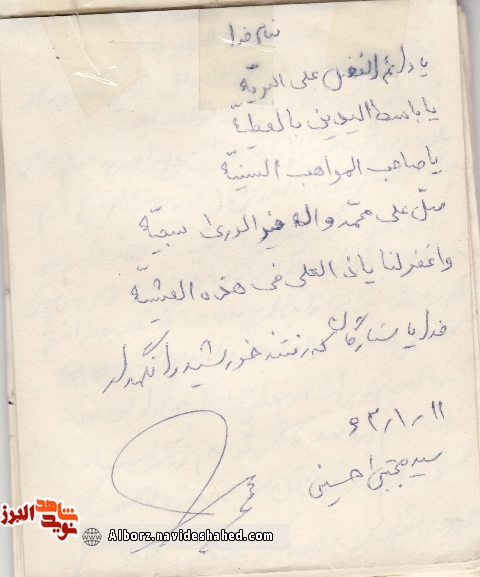 بنام خدا
یا دائم الفضل علی البریّه
یا باسط الیدین بالعطیّة
یا صاحب المواهب السنیّة
صلّ علی محمّد و اله خیر الوری سجیّه
و اغفر لنا یا ذی العلی فی هذه العشیّة
خدایا ستارگان که رفتند خورشید را نگهدار
۶۳/۱/۱۱
سید مجتبی حسینی
شاهد
نوید
البرز
Alborz.navideshahed.com